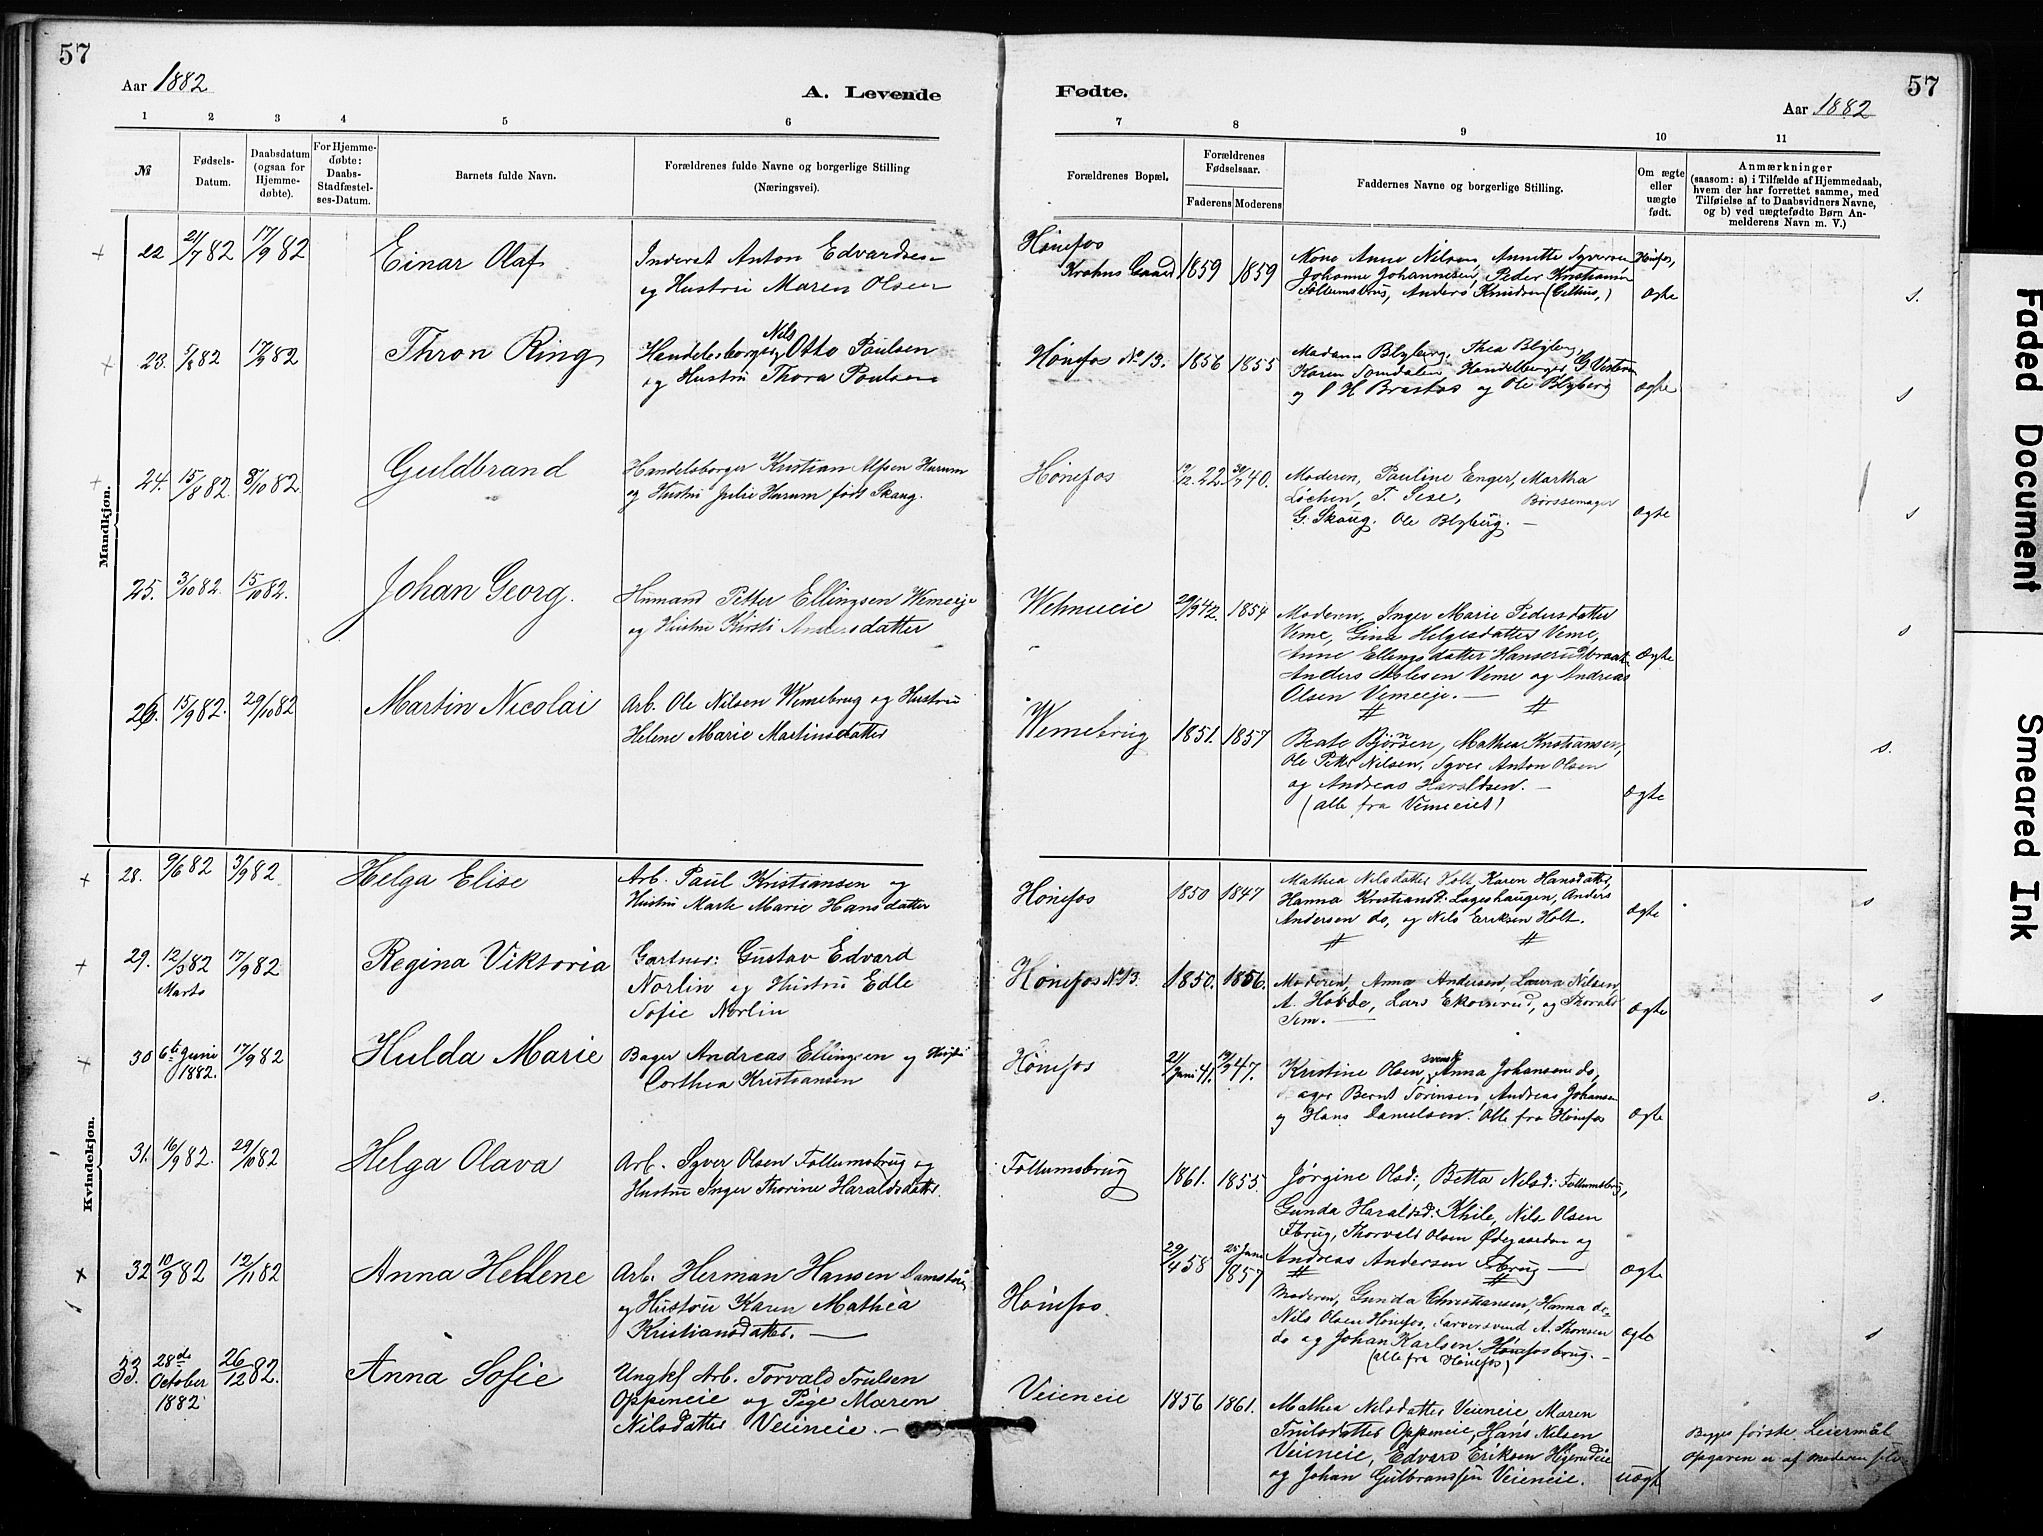 57
57
Aar 1882
A. Levende
Fødte.
Aar 1882
1 2 3 4 5 6 7 8 9 10 11
№
Fødsels-
Datum.
Daabsdatum
(ogsaa for
Hjemme-
døbte).
For Hjemme-
døbte:
Daabs-
Stadfæstel-
ses-Datum.
Barnets fulde Navn.
Forældrenes fulde Navne og borgerlige Stilling
(Næringsvei).
Forældrenes Bopæl.
Forældrenes
Fødselsaar.
Faderens Moderens
Faddernes Navne og borgerlige Stilling.
Om ægte
eller
uægte
født.
Anmærkninger
(saasom: a) i Tilfælde af Hjemmedaab,
hvem der har forrettet samme, med
Tilføielse af to Daabsvidners Navne,
og b) ved uægtefødte Børn An-
melderens Navn m. V.)
Mandkjøn.
22 21/7 82 17/9 82 Einar Olaf
Anton Edvardsen
og Hustru Maren Olsen
Hønefos
Krohns Gaard 1859 1859
Anne Nilsen, Annette Syversen Hønefos,
Johanne Johannesen, Peder Kristiansen
Follumsbrug, Anders Knudsen
ægte
s.
23. 5/8 82 17/9 82 Thron Ring
Handelsborger Nils Otto Paulsen
og Hustru Thora Poulsen
Hønefos No 13. 1856 1855
Madam Blyberg, Thea Blyberg,
Karen Somdalen Handelborger G
og O H Brastad og Ole Blyberg
ægte
s
24. 15/8 82. 8/10 82 Guldbrand
Handelsborger Kristian Alfsen Harum
og Hustru Julie Harum født Skaug.
Hønefos 22. 40.
Moderen, Pauline Enger, Martha
Løchen, T. Børssemager
G. Skaug. Ole Blyberg. —
ægte
s
25. 3/10 82. 15/10 82. Johan Georg.
Petter Ellingsen Wemeeje
og Hustru Kirsti Andersdatter
29/9 42. 1854
Moderen, Inger Marie Pedersdatter
Veme, Gina Helgesdatter Veme,
Anne Ellingsdatter Hanserudbraat
Anders Veme og Andreas
Olsen Vemeeje. —
ægte
s
26. 15/9 82. 29/10 82 Martin Nicolai
Arb. Ole Nilsen Wemebrug og Hustru
Helene Marie Martinsdatter
Wemebrug 1851. 1857
Beate Bjørnsen, Mathea Kristiansen,
Ole Petter Nilsen, Syver Anton Olsen
og Andreas Haraldsen. —
(alle fra Vemeeiet)
ægte
s.
Kvindekjøn.
28. 9/6 82 3/9 82. Helga Elise
Arb. Paul Kristiansen og
Hustru Marte Marie Hansdatter
Hønefos 1850 1847
Mathea Nilsdatter Holt, Karen Hansdatter,
Hanna Kristiansd: Lageshaugen, Anders
Andersen do, og Nils Eriksen Holt.
ægte
s
29. 12/3 82 Marts 17/9 82 Regina Viktoria
Gartner: Gustav Edvard
Norlin og Hustru Edle
Sofie Norlin
Hønefos No 13. 1850. 1856.
Moderen, Anna Andersen, Laura Nilsen,
A. Hovde, Lars Ekornrud, og Thorvald
Sem. —
ægte
s
30 6te Juni 1882. 17/9 82 Hulda Marie
Bager Andreas Ellingsen og Hustru
Corthea Kristiansen
Hønefos 21/Juni 41. 47.
Kristine Olsen, svensk Anna Johansen do,
Bager Bernt Sørensen, Andreas Johansen
og Hans Danielsen. Alle fra Hønefos
ægte
s.
31. 16/9 82. 29/10 82 Helga Olava
Arb. Syver Olsen Follumsbrug og
Hustru Inger Thorine Haraldsdatter.
Follumsbrug 1861. 1855.
Jørgine Olsd:, Betta Nilsd: Follumsbrug,
Gunda Haraldsd: Khile, Nils Olsen
Fbrug, Thorvald Olsen Ødegaarden og
Andreas Andersen Fbrug —
ægte
32 10/9 82 12/11 82 Anna Hellene
Arb. Herman Hansen Damsbrug
og Hustru Karen Mathea
Kristiansdatter. —
Hønefos. 29/4 58 25 Juni 1857
Moderen, Gunda Christiansen, Hanna do
Nils Olsen Hønefos, Farversvend A. Thoresen
do og Johan Karlsen. Hønefosbrug. —
(alle fra Hønefos)
ægte
s
33. 28de October 1882 26/12 82. Anna Sofie
Ungkf Arb. Torvald Trulsen
Oppeneie og Pige Maren
Nilsdatter Veieneie. —
Veieneie 1856 1861.
Mathea Nilsdatter Veieneie, Maren
Trulsdatter Oppeneie, Hans Nilsen
Veieneie, Edvard Eriksen
og Johan Gulbrandsen Veieneie.
uægt
Begges første Leiermål
Opgaven er af moderen selv
Faded Document
Smeared Ink